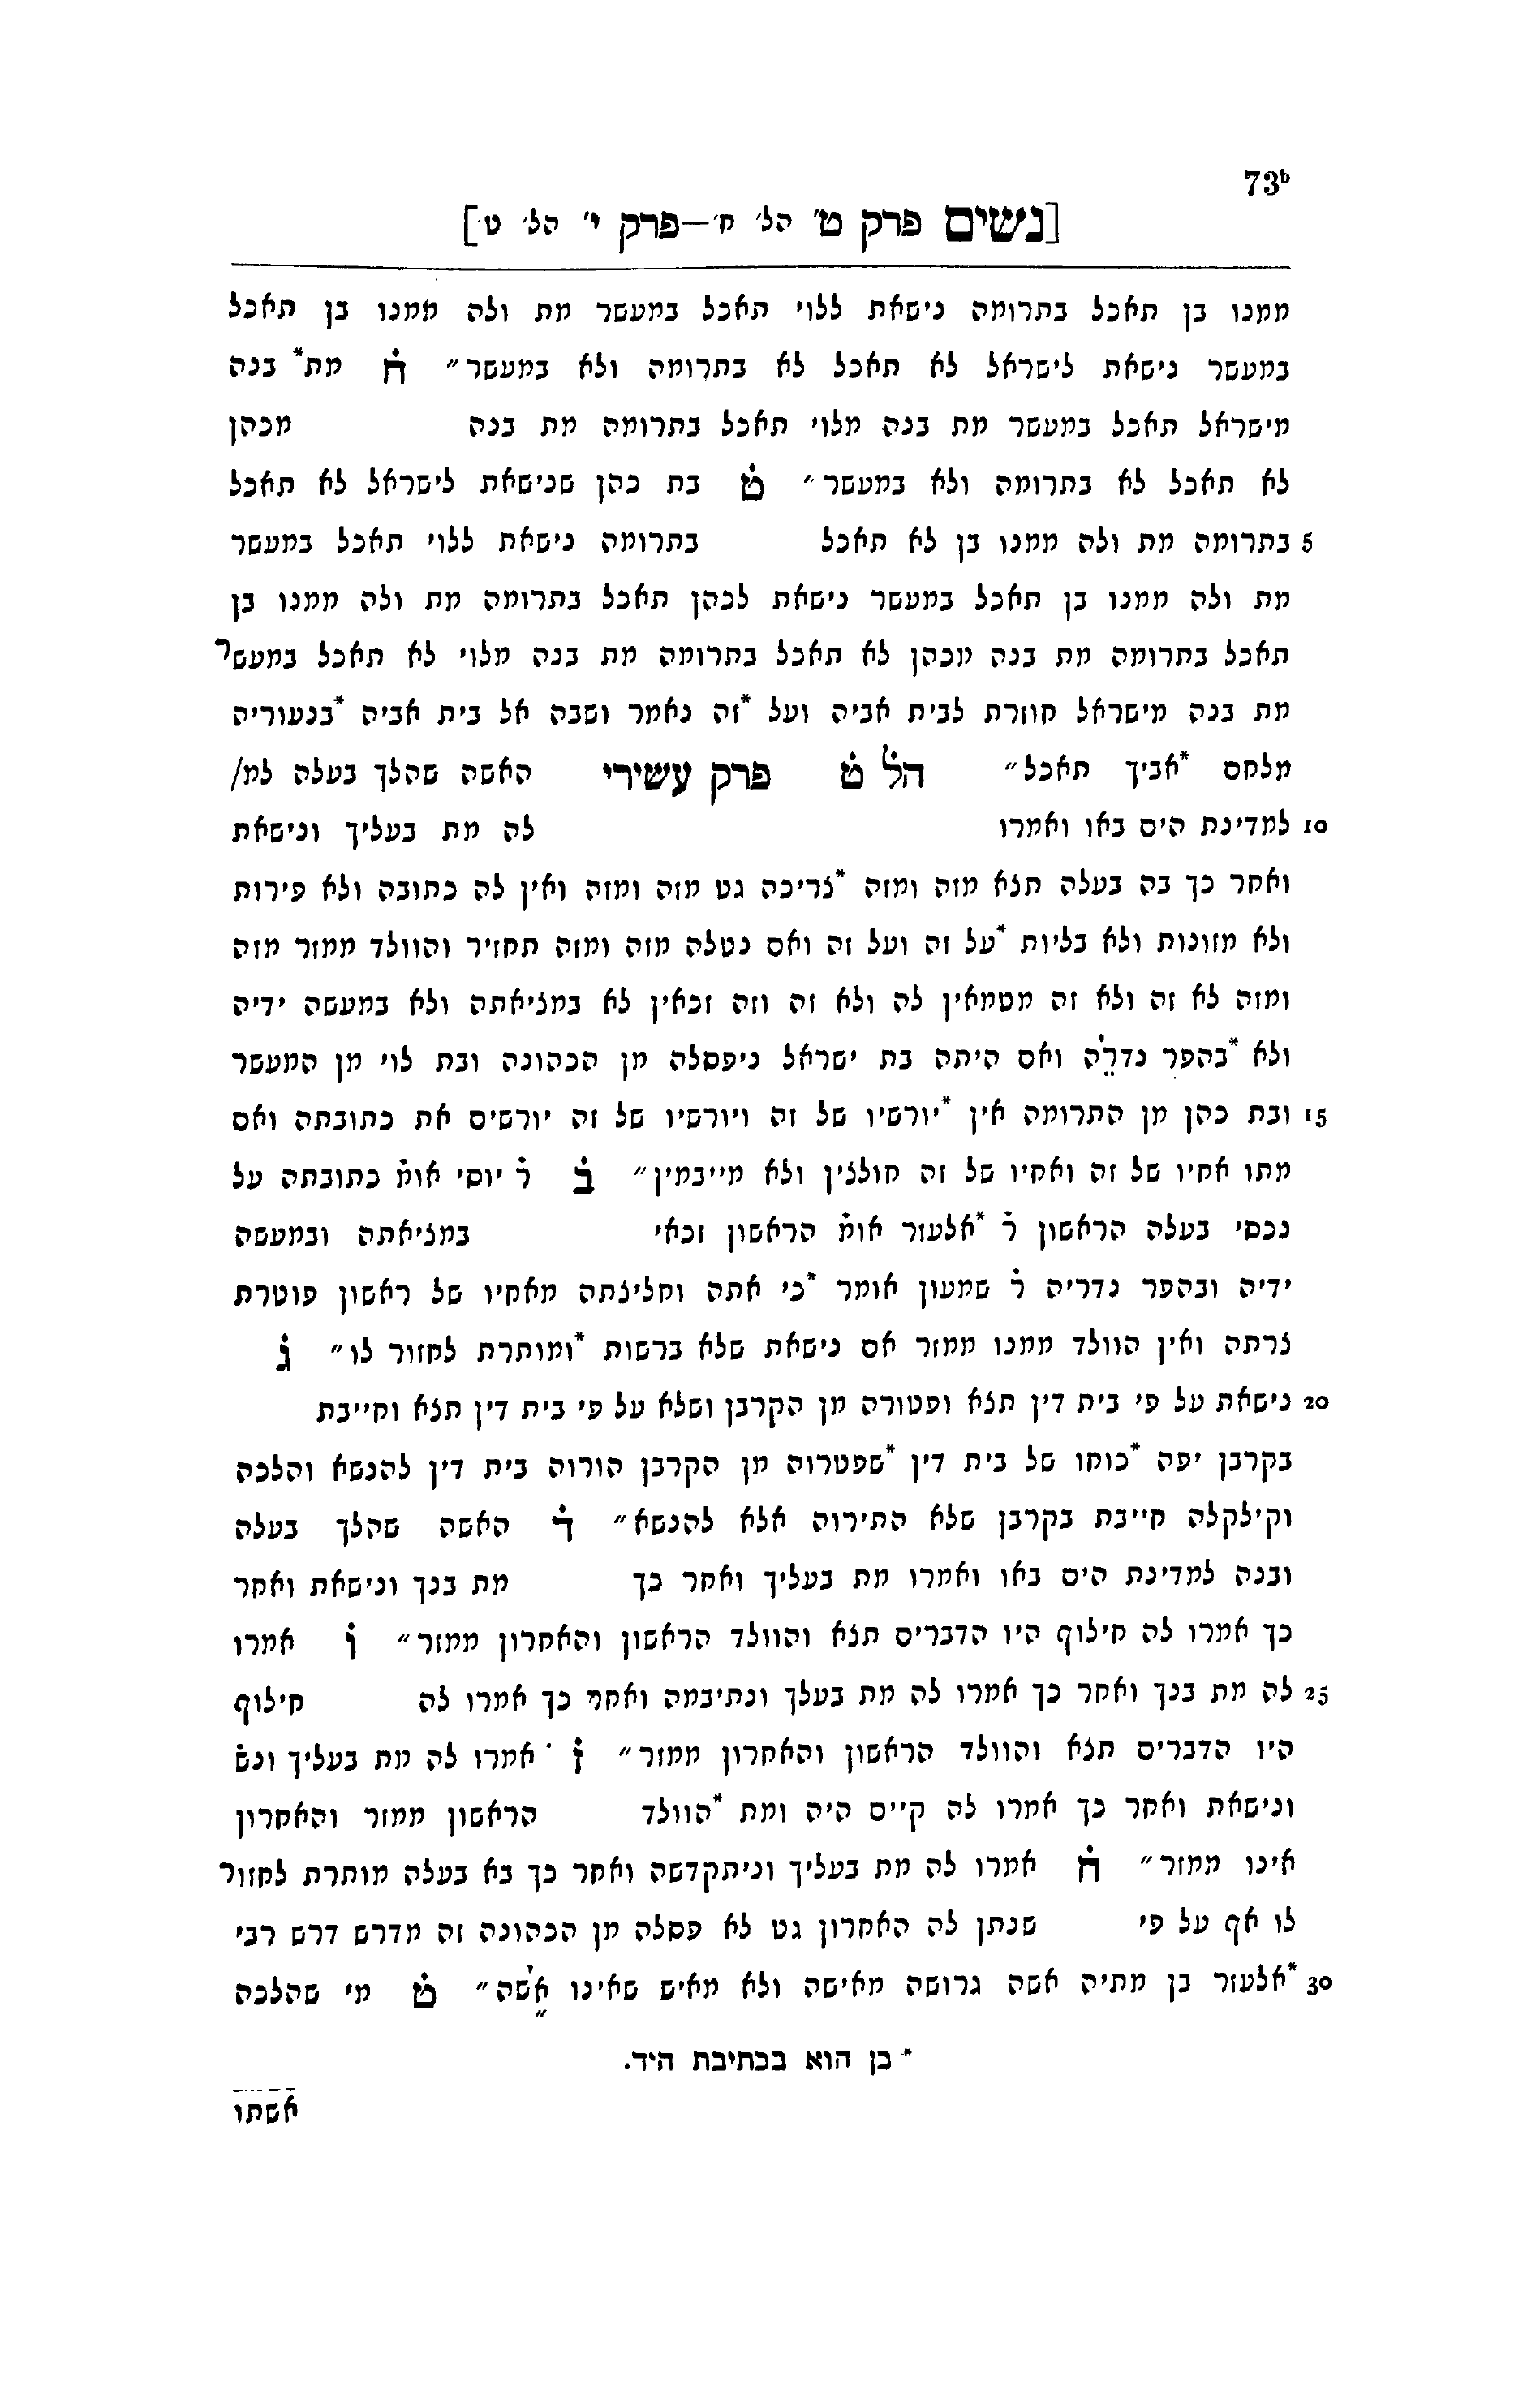 73b
[נשים פרק ט׳ הל׳ ח׳—פרק י׳ הל׳ ט׳]
ממנו בן תאכל בתרומה נישאת ללוי תאכל במעשר מת ולה ממנו בן תאכל
במעשר נישאת לישראל לא תאכל לא בתרומה ולא במעשר״ ח̇ מת* בנה
מישראל תאכל במעשר מת בנה מלוי תאכל בתרומה מת בנה מכהן
לא תאכל לא בתרומה ולא במעשר״ ט̇ בת כהן שנישאת לישראל לא תאכל
5 בתרומה מת ולה ממנו בן לא תאכל בתרומה נישאת ללוי תאכל במעשר
מת ולה ממנו בן תאכל במעשר נישאת לכהן תאכל בתרומה מת ולה ממנו בן
תאכל בתרומה מת בנה מכהן לא תאכל בתרומה מת בנה מלוי לא תאכל במעשר
מת בנה מישראל חוזרת לבית אביה ועל *זה נאמר ושבה אל בית אביה *בנעוריה
מלחם *אביך תאכל״ הל̇ ט̇ פרק עשירי האשה שהלך בעלה למ/
10 למדינת הים באו ואמרו לה מת בעליך ונישאת
ואחר כך בה בעלה תצא מזה ומזה *צריכה גט מזה ומזה ואין לה כתובה ולא פירות
ולא מזונות ולא בליות *על זה ועל זה ואם נטלה מזה ומזה תחזיר והוולד ממזר מזה
ומזה לא זה ולא זה מטמאין לה ולא זה וזה זכאין לא במציאתה ולא במעשה ידיה
ולא *בהפר נדרֵ̇ה ואם היתה בת ישראל ניפסלה מן הכהונה ובת לוי מן המעשר
15 ובת כהן מן התרומה אין *יורשיו של זה ויורשיו של זה יורשים את כתובתה ואם
מתו אחיו של זה ואחיו של זה חולצין ולא מייבמין״ ב̇ ר̇ יוסי אומ̇ כתובתה על
נכסי בעלה הראשון ר̇ *אלעזר אומ̇ הראשון זכאי במציאתה ובמעשה
ידיה ובהפר נדריה ר̇ שמעון אומר *כי אתה וחליצתה מאחיו של ראשון פוטרת
צרתה ואין הוולד ממנו ממזר אם נישאת שלא ברשות *ומותרת לחזור לו״ ג̇
20 נישאת על פי בית דין תצא ופטורה מן הקרבן ושלא על פי בית דין תצא וחייבת
בקרבן יפה *כוחו של בית דין *שפטרוה מן הקרבן הורוה בית דין להנשא והלכה
וקילקלה חייבת בקרבן שלא התירוה אלא להנשא״ ד̇ האשה שהלך בעלה
ובנה למדינת הים באו ואמרו מת בעליך ואחר כך מת בנך ונישאת ואחר
כך אמרו לה חילוף היו הדברים תצא והוולד הראשון והאחרון ממזר״ ו̇ אמרו
25 לה מת בנך ואחר כך אמרו לה מת בעלך ונתיבמה ואחר כך אמרו לה חילוף
היו הדברים תצא והוולד הראשון והאחרון ממזר״ ז̇ אמרו לה מת בעליך ונש̇
ונישאת ואחר כך אמרו לה קיים היה ומת *הוולד הראשון ממזר והאחרון
אינו ממזר״ ח̇ אמרו לה מת בעליך וניתקדשה ואחר כך בא בעלה מותרת לחזור
לו אף על פי שנתן לה האחרון גט לא פסלה מן הכהונה זה מדרש דרש רבי
30 *אלעזר בן מתיה אשה גרושה מאישה ולא מאיש שאינו אִשָׁה״ ט̇ מי שהלכה
* כן הוא בכתיבת היד.
אשתו